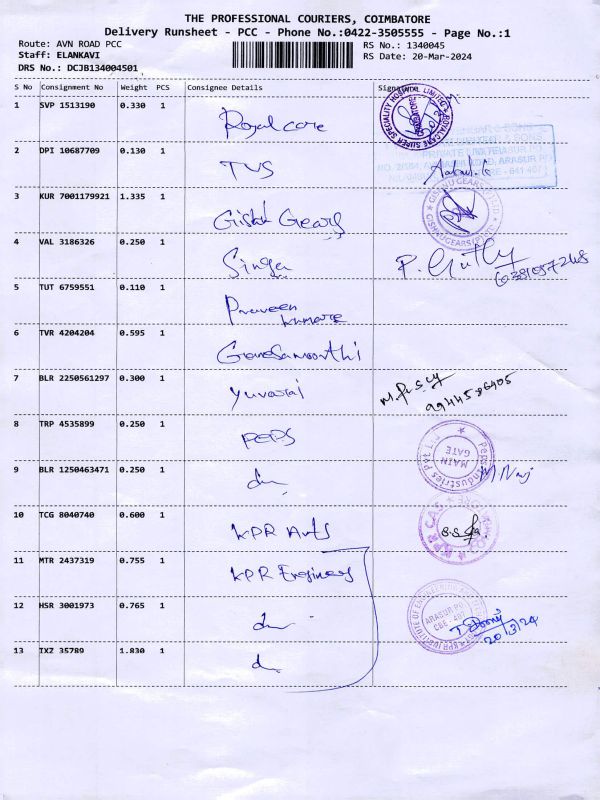 THE PROFESSIONAL COURIERS, COIMBATORE
Delivery Runsheet - PCC - Phone No.:0422-3505555 - Page No.:1
Route: AVN ROAD PCC
RS No.: 1340045
Staff: ELANKAVI
RS Date: 20-Mar-2024
DRS No.: DCJB134004501
S No Consignment No Weight PCS Consignee Details Signature
1 SVP 1513190 0.330 1 Royal care
2 DPI 10687709 0.130 1 TVS
3 KUR 7001179921 1.335 1 Gears
4 VAL 3186326 0.250 1 Singer
5 TUT 6759551 0.110 1 Praveen
6 TVR 4204204 0.595 1
7 BLR 2250561297 0.300 1 Yuvaraj
8 TRP 4535899 0.250 1 PEPS
MAIN GATE
Peps Industries Pvt Ltd
9 BLR 1250463471 0.250 1
10 TCG 8040740 0.600 1 KPR Arts
KPR CAS
11 MTR 2437319 0.755 1 KPR
12 HSR 3001973 0.765 1
ARASUR PO
20/3/24
13 TXZ 35789 1.830 1